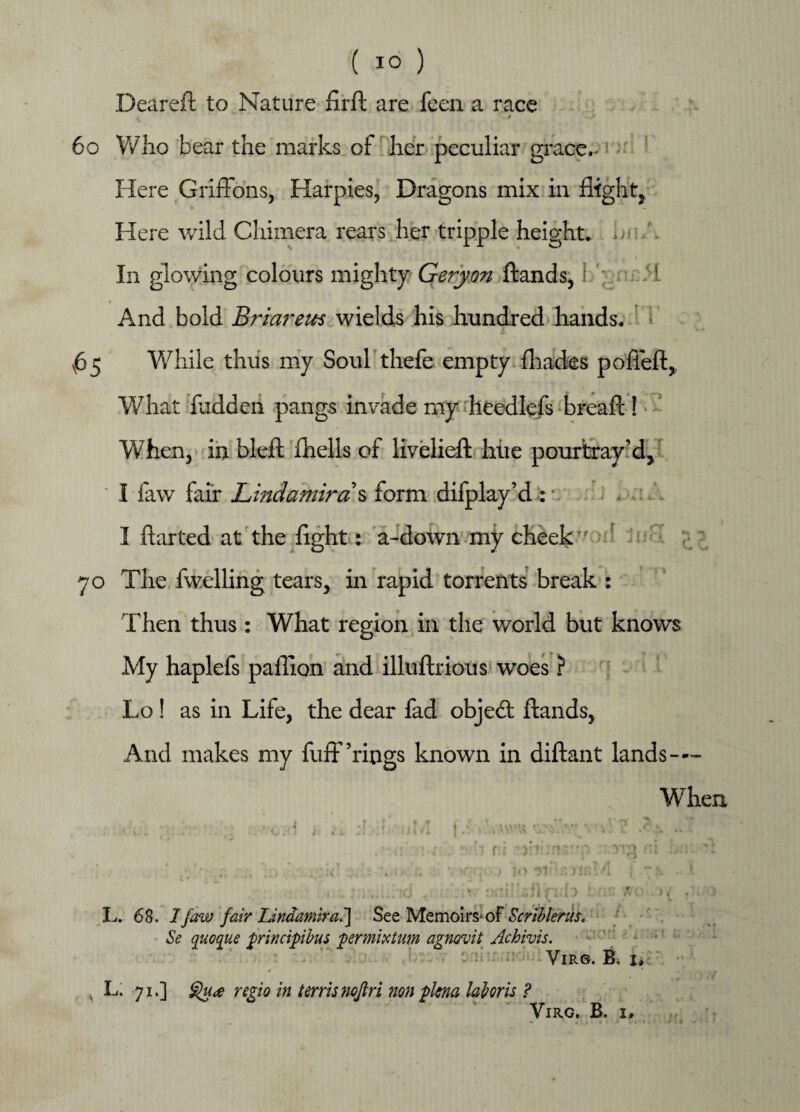 ( 10 )
Deareſt to Nature firſt are ſeen a race
60 Who bear the marks of her peculiar grace.
Here Griffons, Harpies, Dragons mix in flight,
Here wild Chimera rears her tripple height.
In glowing colours mighty Geryon ſtands,
And bold Briareus wields his hundred hands.
65 While thus my Soul theſe empty ſhades poſſeſt,
What ſudden pangs invade my heedleſs breaſt!
When, in bleſt ſhells of livelieſt hue pourtray’d,
I ſaw fair Lindamira’s form diſplay’d:
I ſtarted at the ſight: a-down my cheek
70 The ſwelling tears, in rapid torrents break:
Then thus: What region in the world but knows
My hapleſs paſſion and illuſtrious woes?
Lo! as in Life, the dear ſad object ſtands,
And makes my ſuff’rings known in diſtant lands—
When
L. 68. I ſaw fair Lindamira.] See Memoirs of Scriblerus.
Se quoque principibus permixtum agnovit Achivis.
Virg. B. 1.
L. 71.] Quæ regio in terris noſtri non plena laboris?
Virg. B. 1.